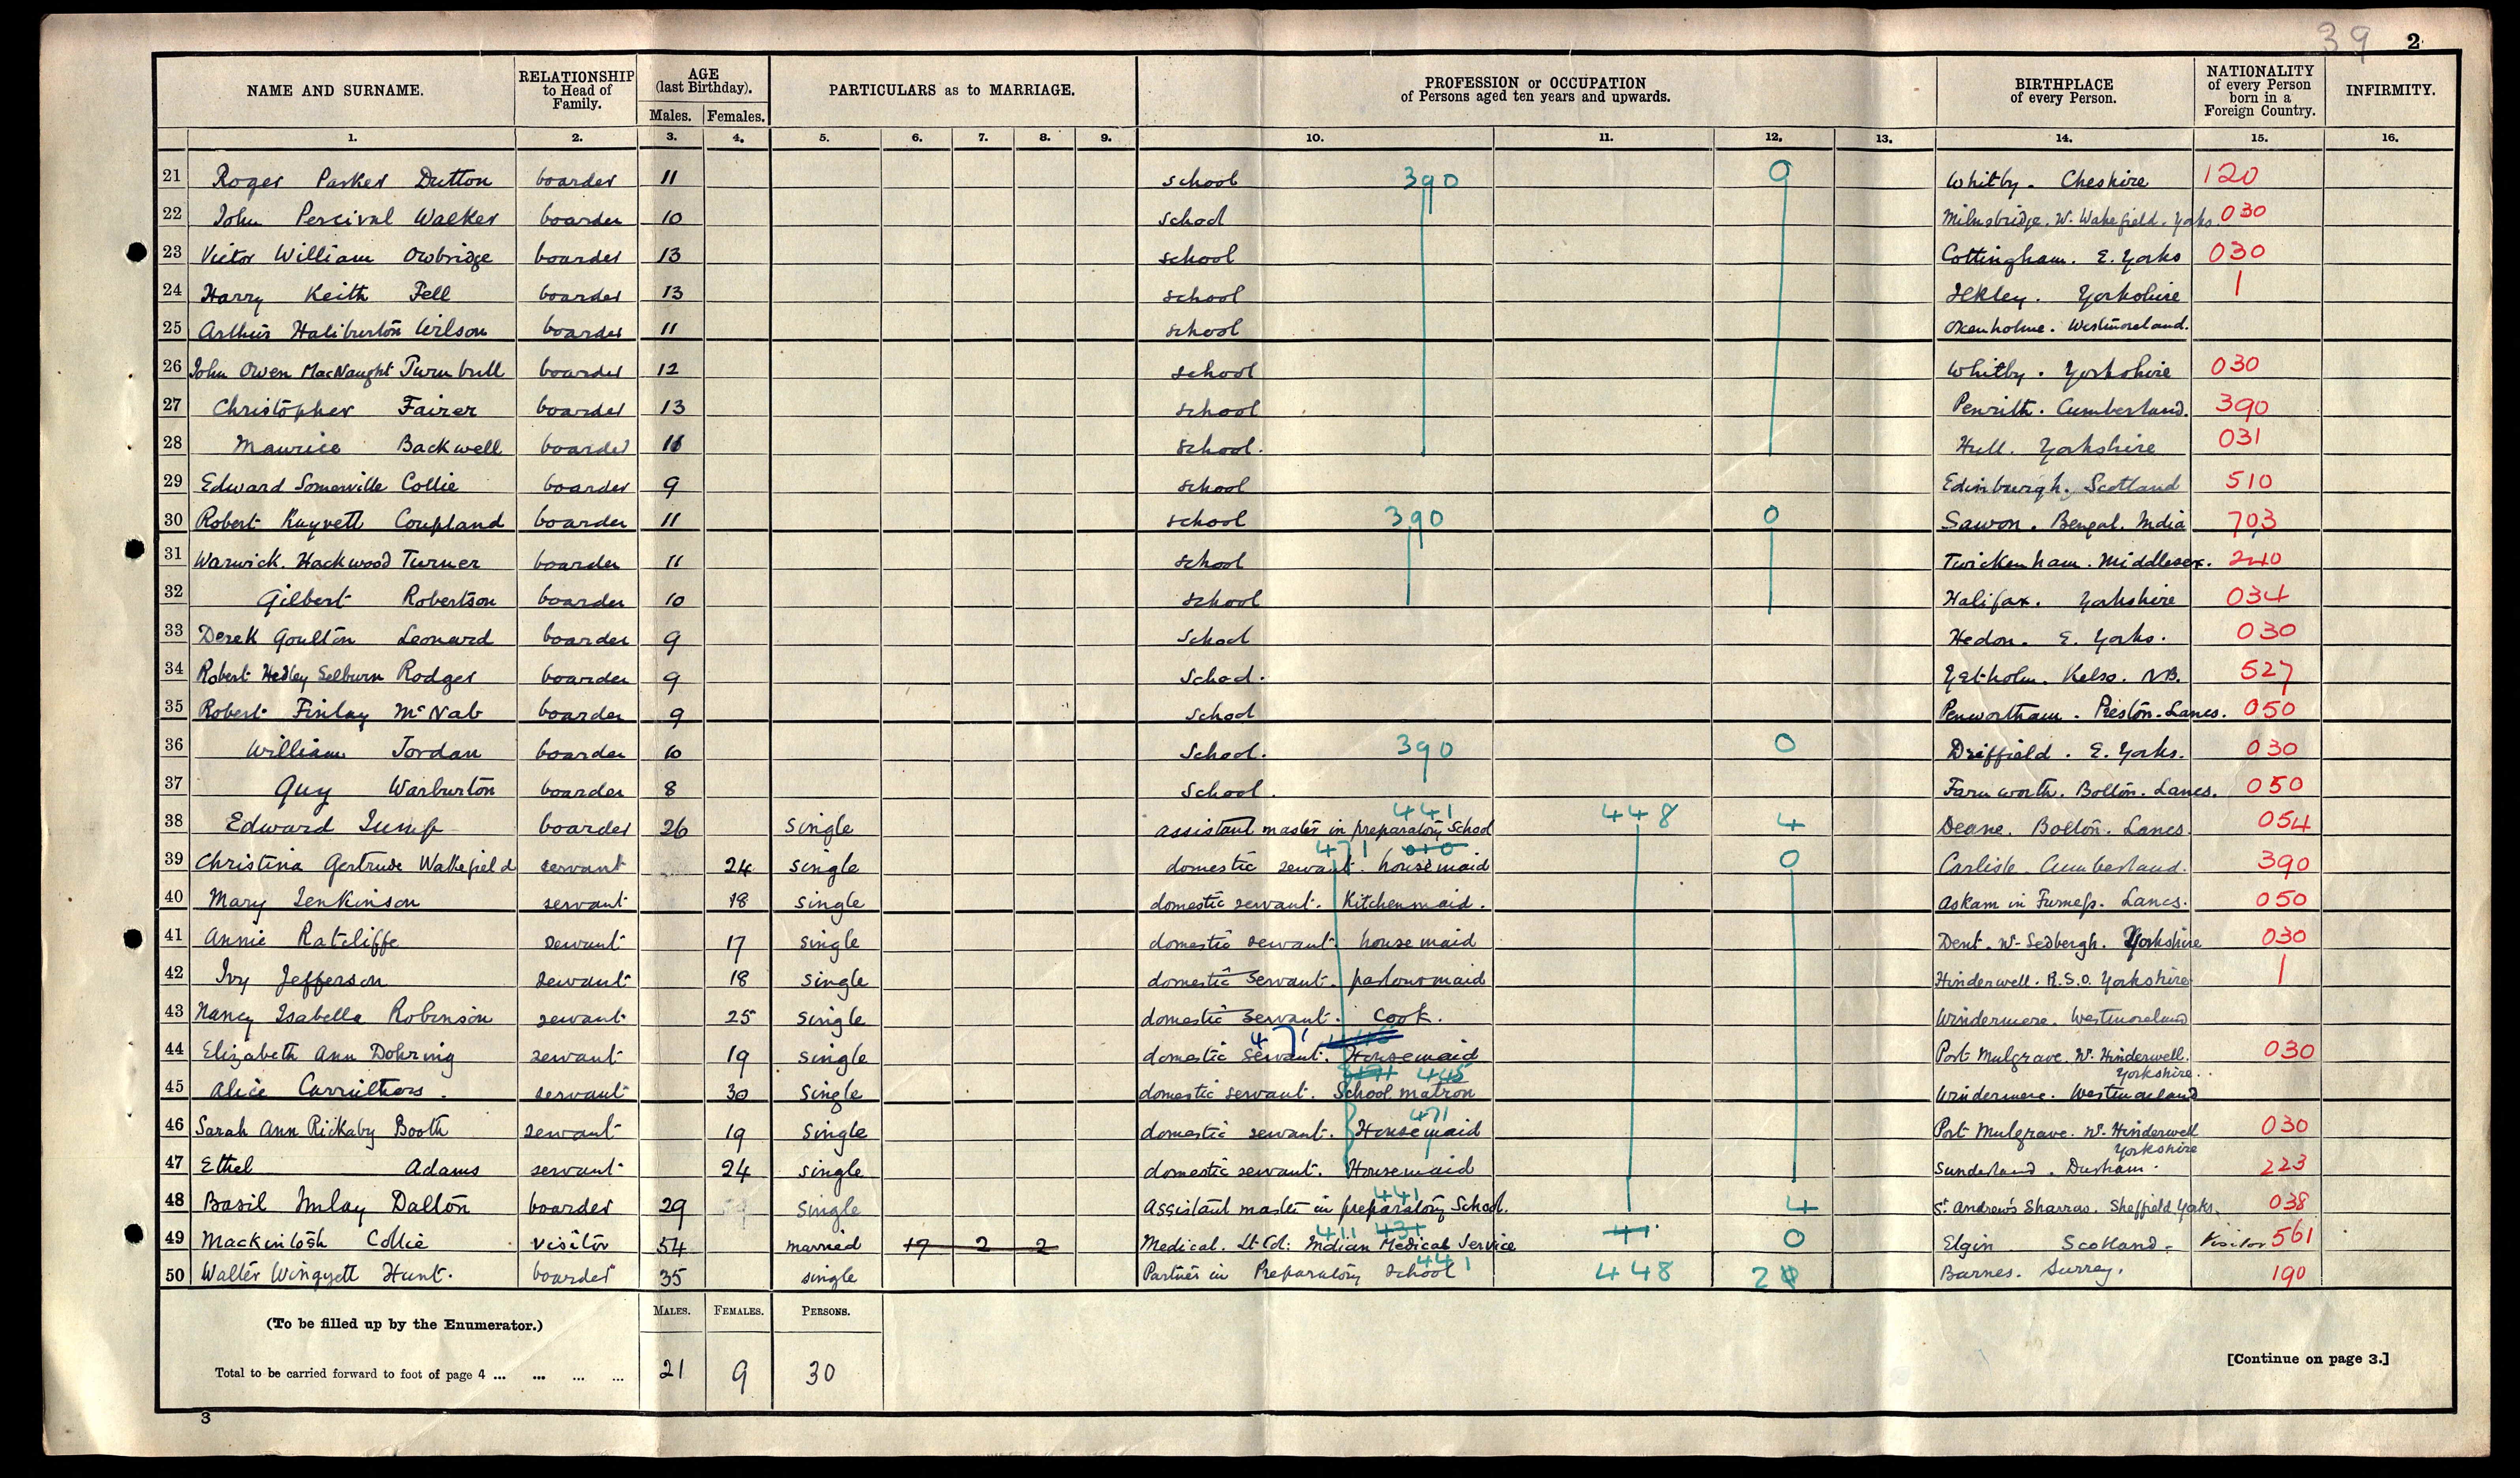 39 2
NAME AND SURNAME. RELATIONSHIP to Head of Family. AGE (last Birthday). Males. Females. PARTICULARS as to MARRIAGE. PROFESSION or OCCUPATION of Persons aged ten years and upwards. BIRTHPLACE of every Person. NATIONALITY of every Person born in a Foreign Country. INFIRMITY.
1. 2. 3. 4. 5. 6. 7. 8. 9. 10. 11. 12. 13. 14. 15. 16.
21 Roger Parker Dutton boarder 11 school 390 0 Whitby. Cheshire 120
22 John Percival Walker boarder 10 school Milnsbridge. W. Wakefield. Yorks. 030
23 Victor William Owbridge boarder 13 school Cottingham. E. Yorks 030
24 Harry Keith Fell boarder 13 school Ilkley. Yorkshire 1
25 Arthur Haliburton Wilson boarder 11 school Oxenholme. Westmoreland.
26 John Owen MacNaught Turnbull boarder 12 school Whitby. Yorkshire 030
27 Christopher Fairer boarder 13 school Penrith. Cumberland. 390
28 Maurice Backwell boarder school. Hull. Yorkshire 031
29 Edward Somerville Collie boarder 9 school Edinburgh. Scotland 510
30 Robert Coupland boarder 11 school 390 0 Bengal. India 703
31 Warwick. Hackwood Turner boarder 11 school Twickenham. Middlesex. 240
32 Gilbert Robertson boarder 10 school Halifax. Yorkshire 034
33 Derek Goulton Leonard boarder 9 School Hedon. E. Yorks. 030
34 Robert Hedley Selburn Rodger boarder 9 School. Yetholm. Kelso. N.B. 527
35 Robert Finlay McNab boarder 9 School Penwortham. Preston. Lancs. 050
36 William Jordan boarder 10 School. 390 0 Driffield. E. Yorks. 030
37 Guy Warburton boarder 8 School. Farnworth. Bolton. Lancs. 050
38 Edward Jump boarder 26 Single assistant master in preparatory School 441 448 4 Deane. Bolton. Lancs. 054
39 Christina Gertrude Wakefield servant 24 single domestic servant. housemaid 471 010 0 Carlisle. Cumberland. 390
40 Mary Jenkinson servant 18 single domestic servant. Kitchenmaid. Askam in Furness. Lancs. 050
41 Annie Ratcliffe servant 17 single domestic servant. housemaid Dent. Nr Sedbergh. Yorkshire 030
42 Ivy Jefferson servant 18 single domestic servant. parlourmaid Hinderwell. R.S.O. Yorkshire 1
43 Nancy Isabella Robinson servant 25 single domestic servant. Cook. Windermere. Westmoreland
44 Elizabeth Ann Dohring servant 19 single domestic servant. Housemaid 471 Port Mulgrave. Nr. Hinderwell. Yorkshire. 030
45 Alice Carruthers. servant 30 Single domestic servant. School matron 445 Windermere. Westmoreland
46 Sarah Ann Rickaby Booth servant 19 Single domestic servant. Housemaid 471 Port Mulgrave. Nr. Hinderwell Yorkshire 030
47 Ethel Adams servant 24 single domestic servant. Housemaid Sunderland. Durham. 223
48 Basil Imlay Dalton boarder 29 Single Assistant master in preparatory School. 441 4 St. Andrew's Sharrow. Sheffield. Yorks. 038
49 Mackintosh Collie visitor 54 married 17 2 2 Medical. Lt Col: Indian Medical Service 411 431 0 Elgin Scotland - Visitor 561
50 Walter Wingyett Hunt. boarder 35 single Partner in Preparatory School 441 448 Barnes. Surrey. 190
(To be filled up by the Enumerator.) MALES. FEMALES. PERSONS.
Total to be carried forward to foot of page 4 ... ... ... ... 21 9 30
[Continue on page 3.]
3